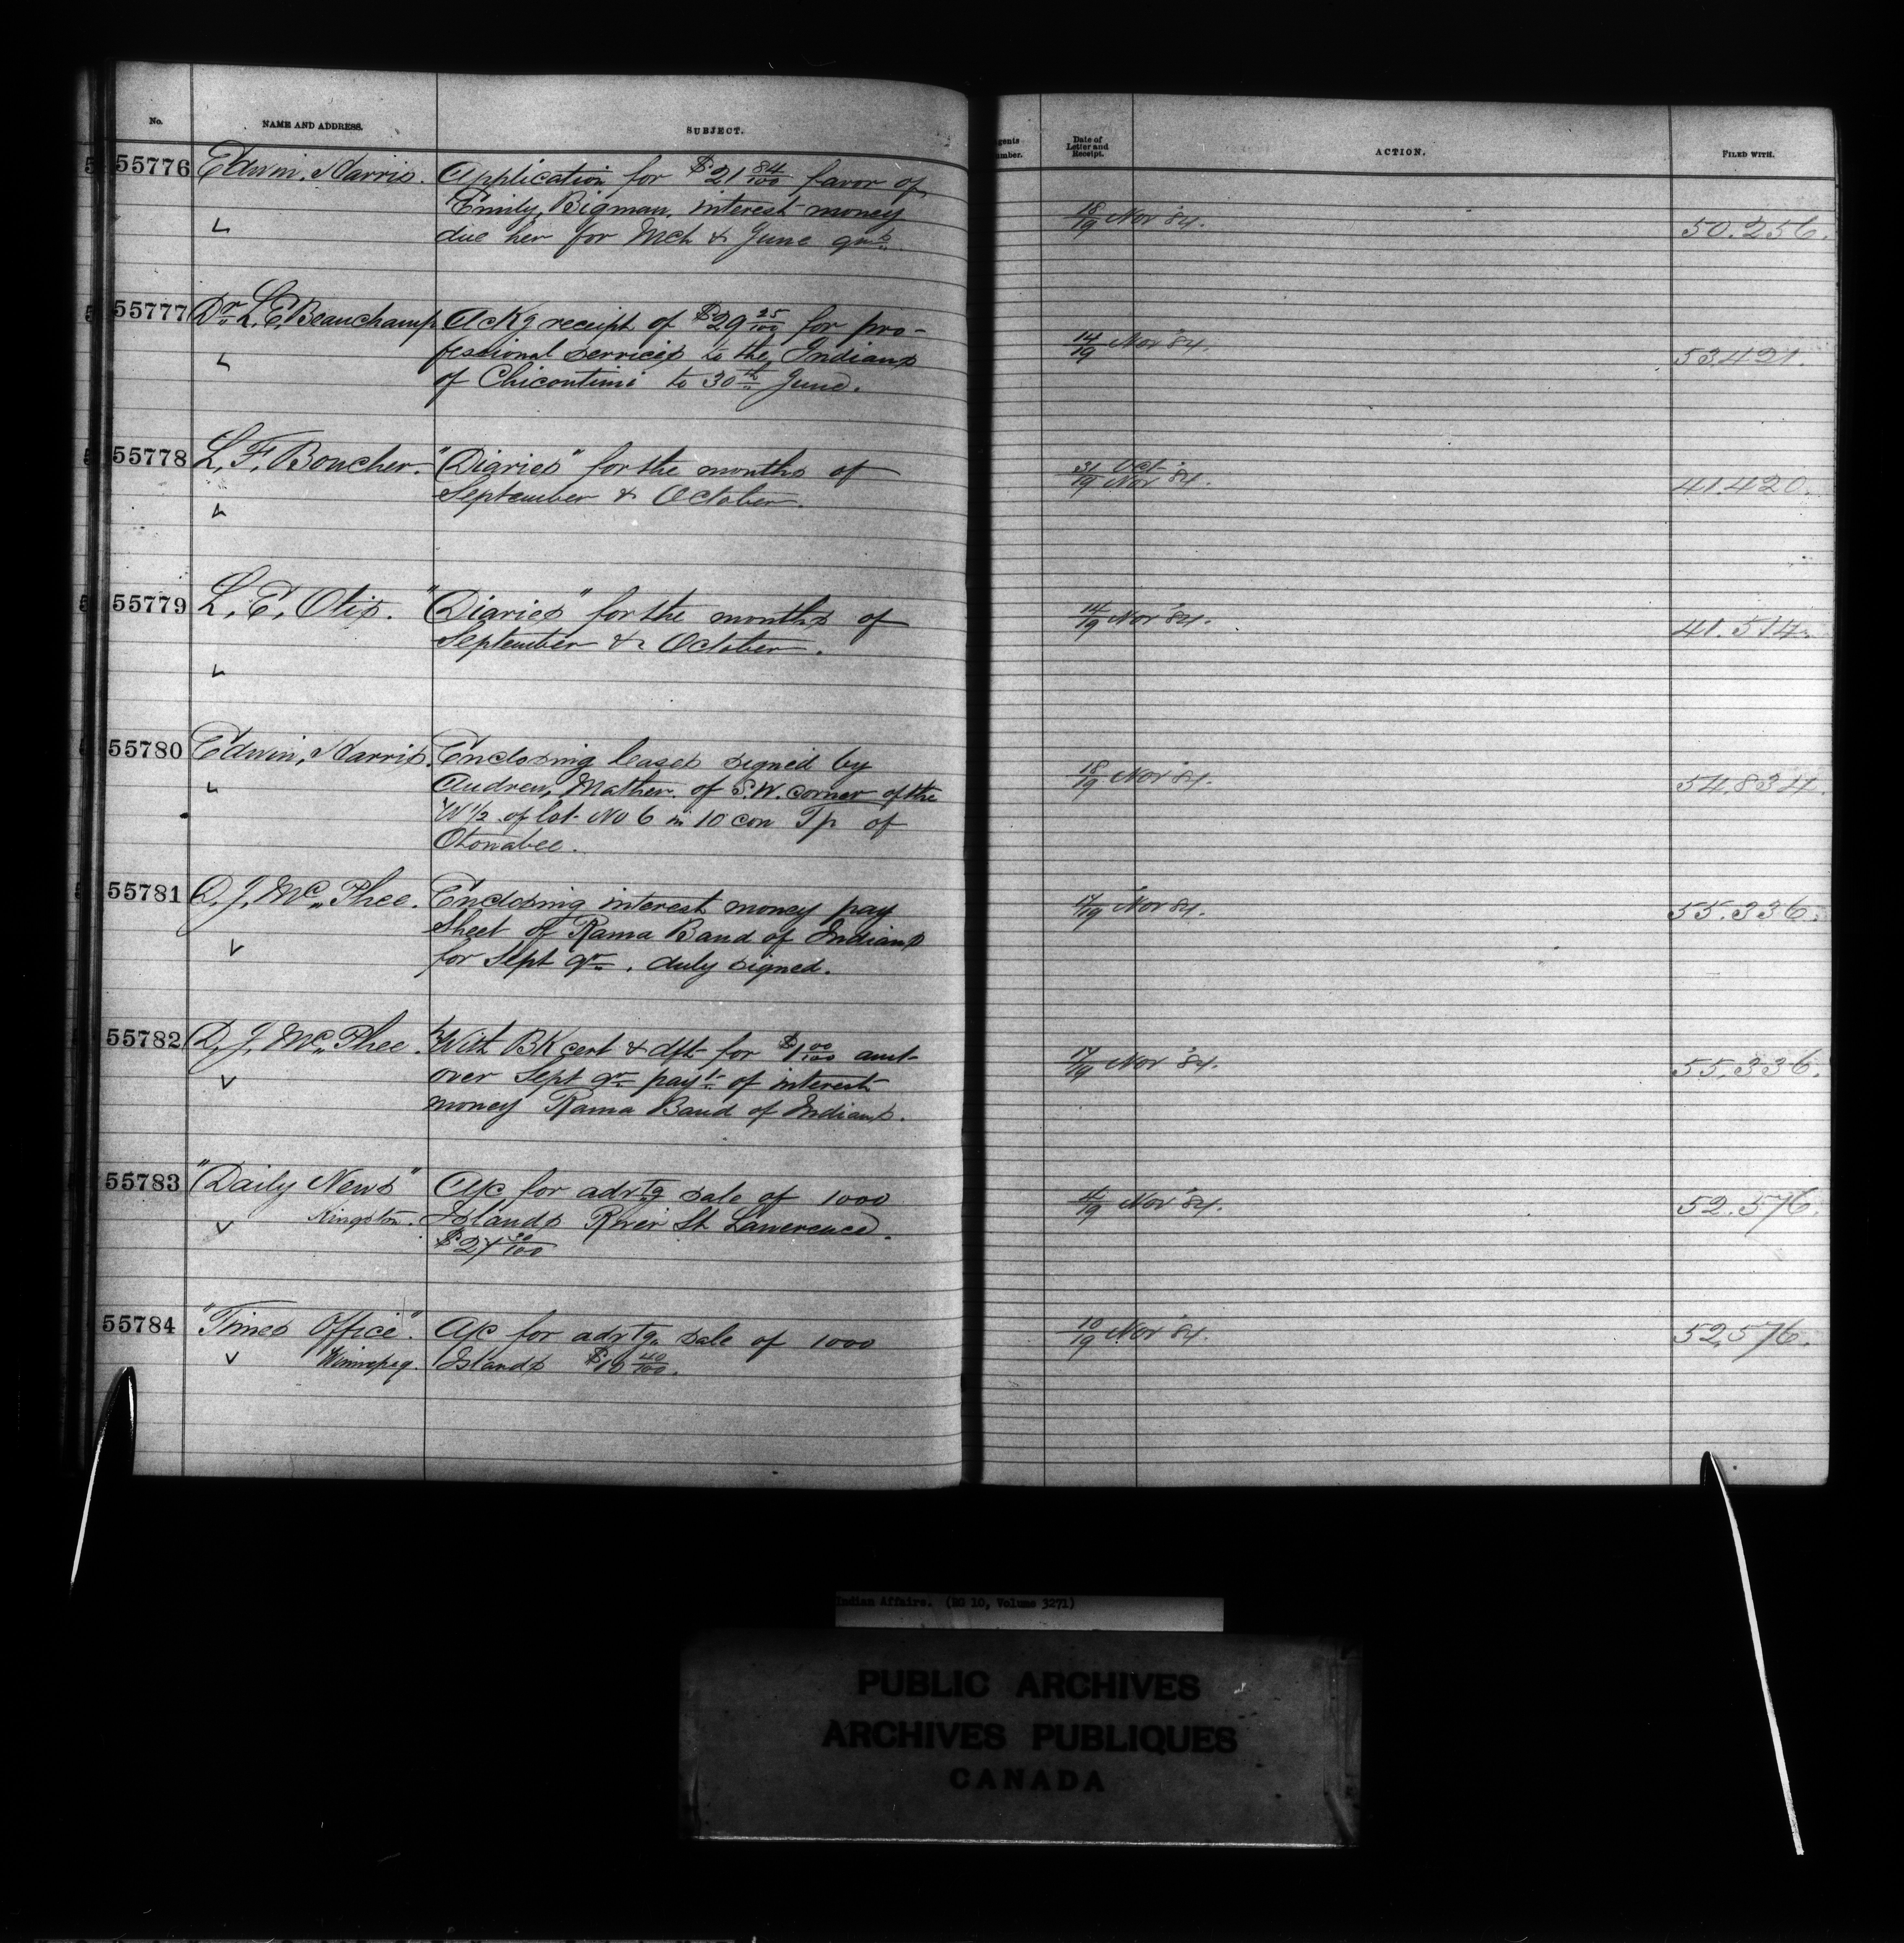 No. NAME AND ADDRESS. SUBJECT. gents umber. Date of Letter and Receipt. ACTION. FILED WITH.
55776 Edwin Harris. Application for $21 84/100 favor of
Emily Bigman, interest money 18/19 Nov '84. 50.256.
due her for Mch & June qrs.
55777 Dr. L. E. Beauchamp Ackg receipt of $29 25/100 for pro-
fessional services to the Indians 14/19 Nov '84. 53,421.
of Chicoutimi to 30th June.
55778 L. F. Boucher. "Diaries" for the months of 31/19 Oct Nov '84. 41.420.
September & October.
55779 L. E. Otis. "Diaries" for the months of 14/19 Nov '84. 41.514.
September & October.
55780 Edwin Harris. Enclosing leases signed by 18/19 Nov '84. 54,834.
Andrew Mather of S.W. corner of the
W 1/2 of lot No 6 in 10 con Tp of
Otonabee.
55781 D. J. McPhee. Enclosing interest money pay 17/19 Nov 84. 55.336.
Sheet of Rama Band of Indians
for Sept qr. duly signed.
55782 D. J. McPhee. With BK cert & dft for $1 00/100 amt 17/19 Nov '84. 55,336.
over Sept qr payt of interest
money Rama Band of Indians.
55783 "Daily News" A/c for advtg sale of 1000 4/19 Nov '84. 52.576.
Kingston. Islands River St. Lawrence.
$27 30/100
55784 "Times Office". A/c for advtg. sale of 1000 10/19 Nov '84. 52,576.
Winnipeg. Islands $10 40/100.
Indian Affairs. (RG 10, Volume 3271)
PUBLIC ARCHIVES
ARCHIVES PUBLIQUES
CANADA